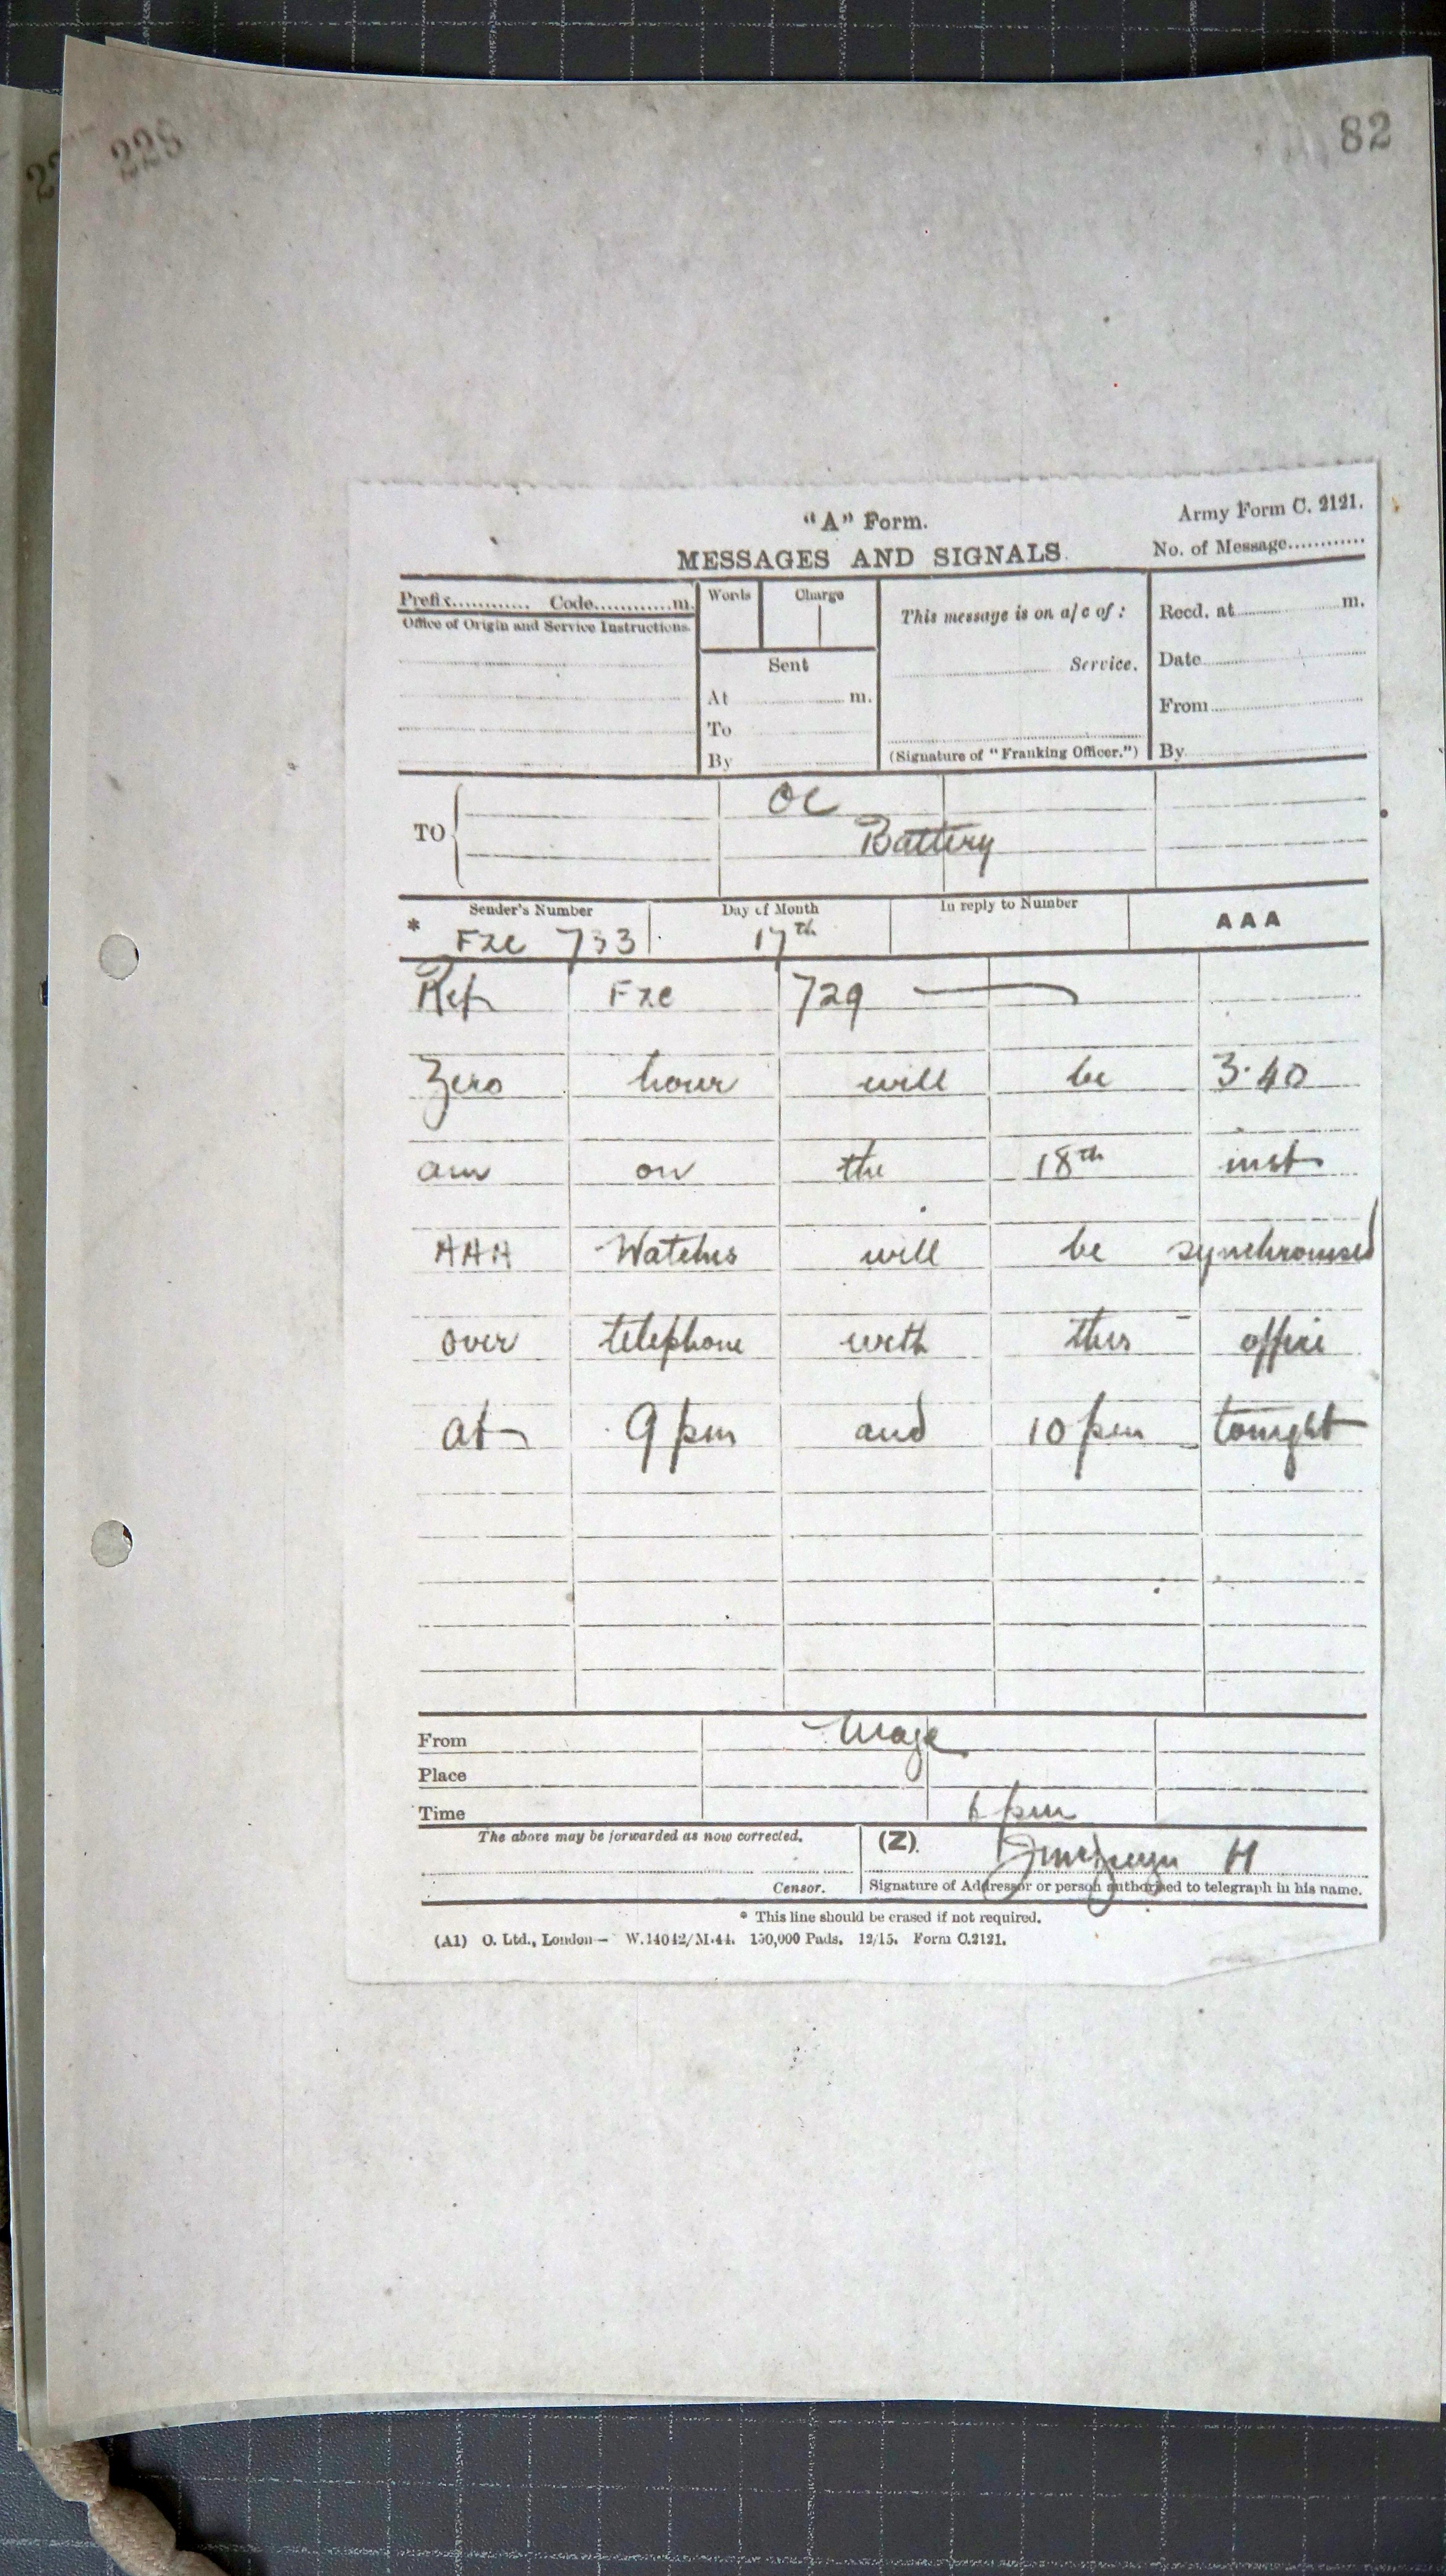 228
82
"A" Form.
Army Form C. 2121.
MESSAGES AND SIGNALS.
No. of Message............
Prefix............ Code............m.
Words
Charge
This message is on a/c of :
Recd. at............m.
Office of Origin and Service Instructions.
Sent
............Service.
Date............
At............m.
From............
To............
(Signature of "Franking Officer.")
By............
By............
TO
OC
Battery
Sender's Number
Day of Month
In reply to Number
AAA
* 733
17th
Ref 729
Zero hour will be 3.40
am on the 18th inst
AAA Watches will be synchronised
over telephone with this office
at 9 pm and 10 pm tonight
From
Place
Time
6 pm
The above may be forwarded as now corrected.
(Z).
Censor.
Signature of Addressor or person authorised to telegraph in his name.
* This line should be erased if not required.
(A1) O. Ltd., London— W.14042/M.44. 150,000 Pads. 12/15. Form C.2121.